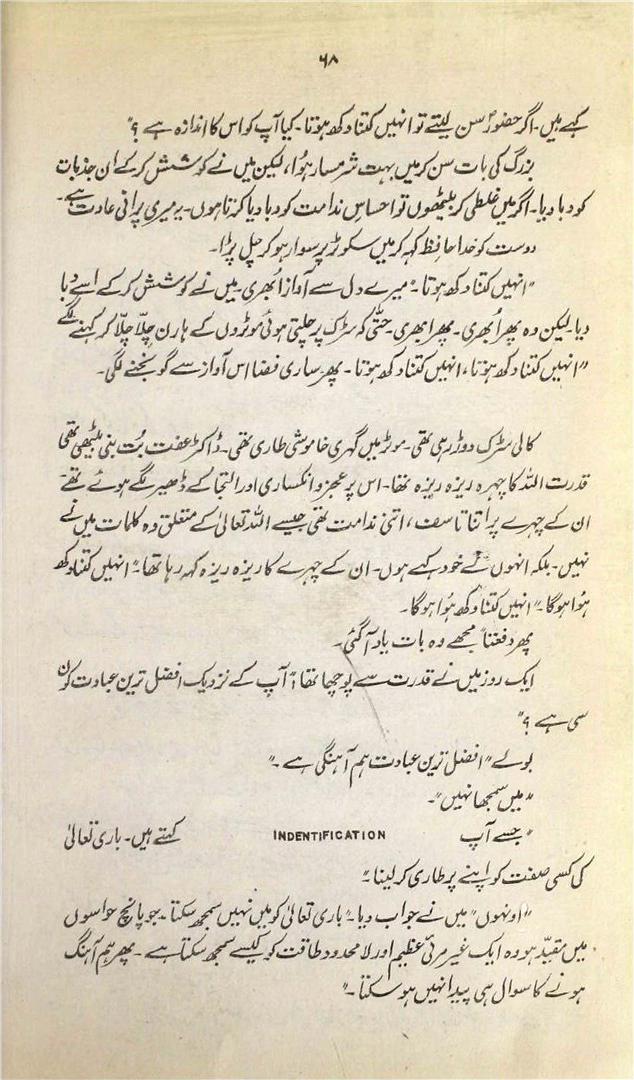 ۶۸
کہے ہیں۔ اگر حضورؐ سن لیتے تو انہیں کتنا دکھ ہوتا۔ کیا آپ کو اس کا اندازہ ہے ؟"
بزرگ کی بات سن کر میں بہت شرمسار ہُوا، لیکن میں نے کوشش کر کے ان جذبات
کو دبا دیا۔ اگر میں غلطی کر بیٹھوں تو احساسِ ندامت کو دبا دیا کرتا ہوں۔ یہ میری پرانی عادت ہے۔
دوست کو خدا حافظ کہہ کر میں سکوٹر پر سوار ہو کر چل پڑا۔
"انہیں کتنا دکھ ہوتا۔" میرے دل سے آواز اُبھری۔ میں نے کوشش کر کے اسے دبا
دیا۔ لیکن وہ پھر اُبھری۔ پھر ابھری۔ حتّٰی کہ سڑک پر چلتی ہوئی موٹروں کے ہارن چِلّا چِلّا کر کہنے لگے
"انہیں کتنا دکھ ہوتا، انہیں کتنا دکھ ہوتا۔ پھر ساری فضا اس آواز سے گونجنے لگی۔
کالی سڑک دوڑ رہی تھی۔ موٹر میں گہری خاموشی طاری تھی۔ ڈاکٹر عفت بُت بنی بیٹھی تھی
قدرت اللہ کا چہرہ ریزہ ریزہ تھا۔ اس پر عجز و انکساری اور التجا کے ڈھیر لگے ہوئے تھے
ان کے چہرے پر اتنا تاسف، اتنی ندامت تھی جیسے اللہ تعالیٰ کے متعلق وہ کلمات میں نے
نہیں۔ بلکہ انہوں نے خود کہے ہوں۔ ان کے چہرے کا ریزہ ریزہ کہہ رہا تھا۔ "انہیں کتنا دکھ
ہُوا ہو گا۔" انہیں کتنا دکھ ہُوا ہو گا۔
پھر دفعتاً مجھے وہ بات یاد آ گئی۔
ایک روز میں نے قدرت سے پوچھا تھا "آپ کے نزدیک افضل ترین عبادت کون
سی ہے ؟"
بولے "افضل ترین عبادت ہم آہنگی ہے۔"
"میں سمجھا نہیں"۔
"جسے آپ INDENTIFICATION کہتے ہیں۔ باری تعالیٰ
کی کسی صفت کو اپنے پر طاری کر لینا۔"
"اونہوں" میں نے جواب دیا۔ "باری تعالیٰ کو میں نہیں سمجھ سکتا۔ جو پانچ حواسوں
میں مقیّد ہو وہ ایک غیر مرئی عظیم اور لا محدود طاقت کو کیسے سمجھ سکتا ہے۔ پھر ہم آہنگ
ہونے کا سوال ہی پیدا نہیں ہو سکتا۔"